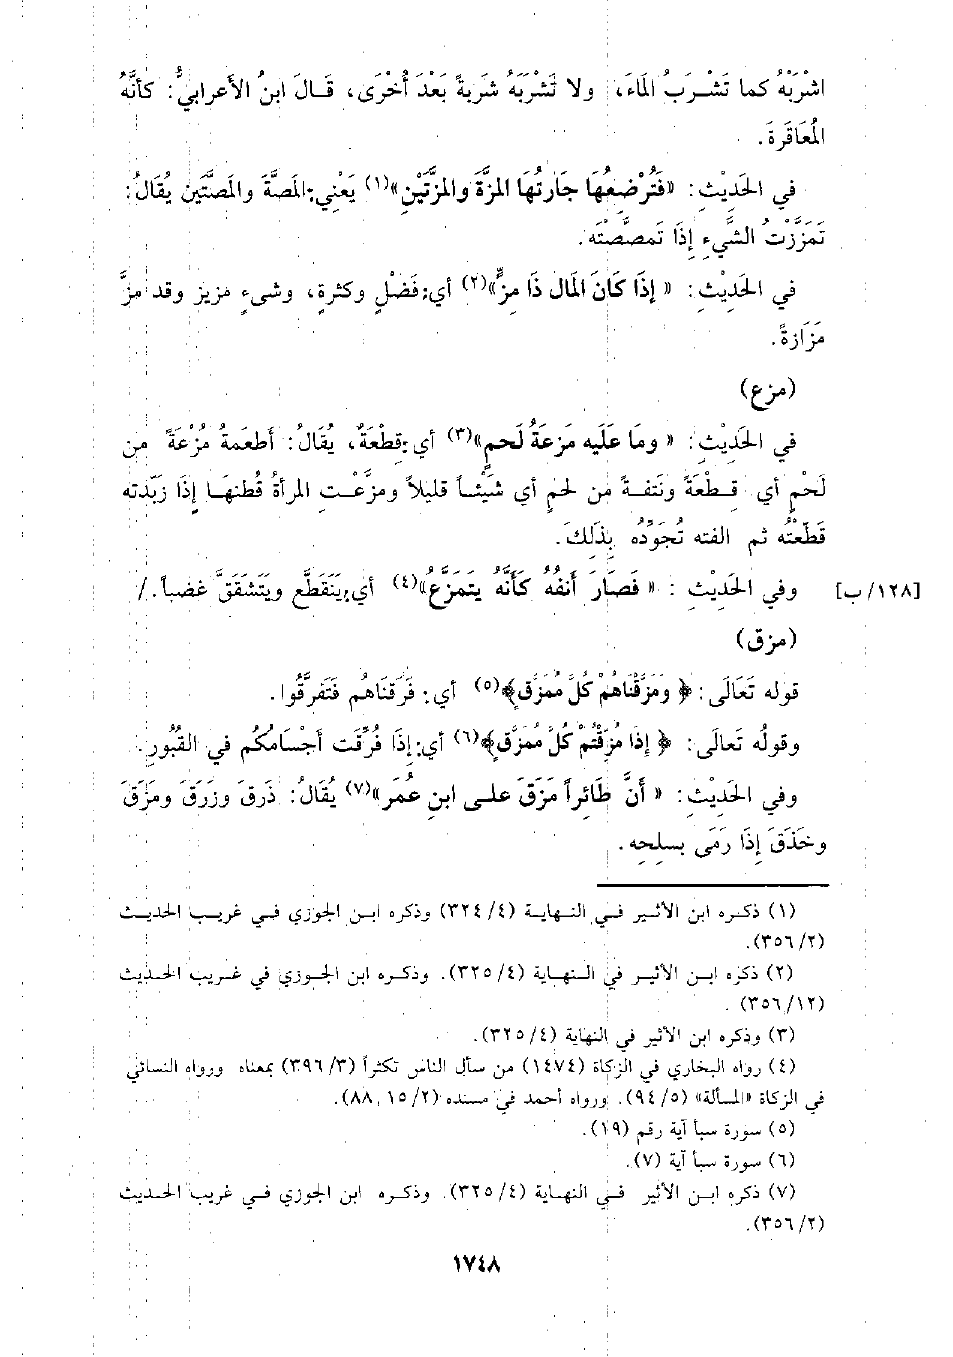 اشْرَبْهُ كما تَشْرَبُ المَاءَ، ولا تَشْرَبَهُ شَربةً بَعْدَ أُخْرَى، قَالَ ابنُ الأَعرابيُّ: كأنَّهُ
المُعَاقَرةَ.
في الحَدِيْثِ: «فَتُرْضعُهَا جَارتُهَا المزَّةَ والمزَّتَيْنِ»(١) يَعْنِي: المَصَّةَ والمَصَّتَين يُقَالُ:
تَمَزَّزْتُ الشَّيءِ إِذَا تَمصَّصْتَه.
في الحَدِيْثِ: « إِذَا كَانَ المَال ذَا مِزٍّ»(٢) أي: فَضْلٍ وكثرةٍ، وشىءٍ مزيز وقد مزَّ
مَزَازةً.
(مزع)
في الحَدِيْثِ: « ومَا عَلَيه مَزعَةُ لَحمٍ»(٣) أي: قِطْعَةٌ، يُقَالُ: أَطعَمةُ مُزْعَةً من
لَحْمٍ أي قِـطْعَةً ونَتفـةً من لحمٍ أي شَيْئـاً قليلاً ومزَّعْت المرأةُ قُطنهَـا إِذَا زَبّدته
قَطّعْتُه ثم الفته تُجَوِّدُه بِذَلِكَ.
وفي الحَدِيْثِ : « فَصَارَ أَنفُهُ كَأَنَّهُ يتمَزعُ»(٤) أي: يَتَقطَّع ويَتَشقَقَّ غضباً. / [١٢٨/ ب]
(مزق)
قوله تَعَالَى: ﴿ وَمَزَّقْنَاهُمْ كُلَّ مُمَزَّقٍ﴾(٥) أي: فَرَقنَاهُم فَتَفرَّقُوا.
وقولُه تَعالَى: ﴿ إِذَا مُزِّقْتُمْ كُلَّ مُمَزَّقٍ﴾(٦) أي: إِذَا فُرِّقَت أَجْسَامُكُم في القُبُورِ.
وفي الحَدِيْثِ: « أَنَّ طَائِراً مَزَقَ علـى ابنِ عُمَر»(٧) يُقَالُ: ذَرقَ وزَرَقَ ومزَقَ
وخَذَقَ إِذَا رَمَى بسلحِه.
(١) ذكره ابن الأثير في النهاية (٣٢٤/٤) وذكره ابن الجوزي في غريب الحديث
(٣٥٦/٢).
(٢) ذكره ابن الأثير في النهاية (٣٢٥/٤). وذكره ابن الجوزي في غريب الحديث
(٣٥٦/١٢) .
(٣) وذكره ابن الأثير في النهاية (٣٢٥/٤).
(٤) رواه البخاري في الزكاة (١٤٧٤) من سأل الناس تكثراً (٣٩٦/٣) بمعناه ورواه النسائي
في الزكاة «المسألة» (٩٤/٥). ورواه أحمد في مسنده (١٥/٢, ٨٨).
(٥) سورة سبأ آية رقم (١٩).
(٦) سورة سبأ آية (٧).
(٧) ذكره ابن الأثير في النهاية (٣٢٥/٤). وذكره ابن الجوزي في غريب الحديث
(٣٥٦/٢).
١٧٤٨